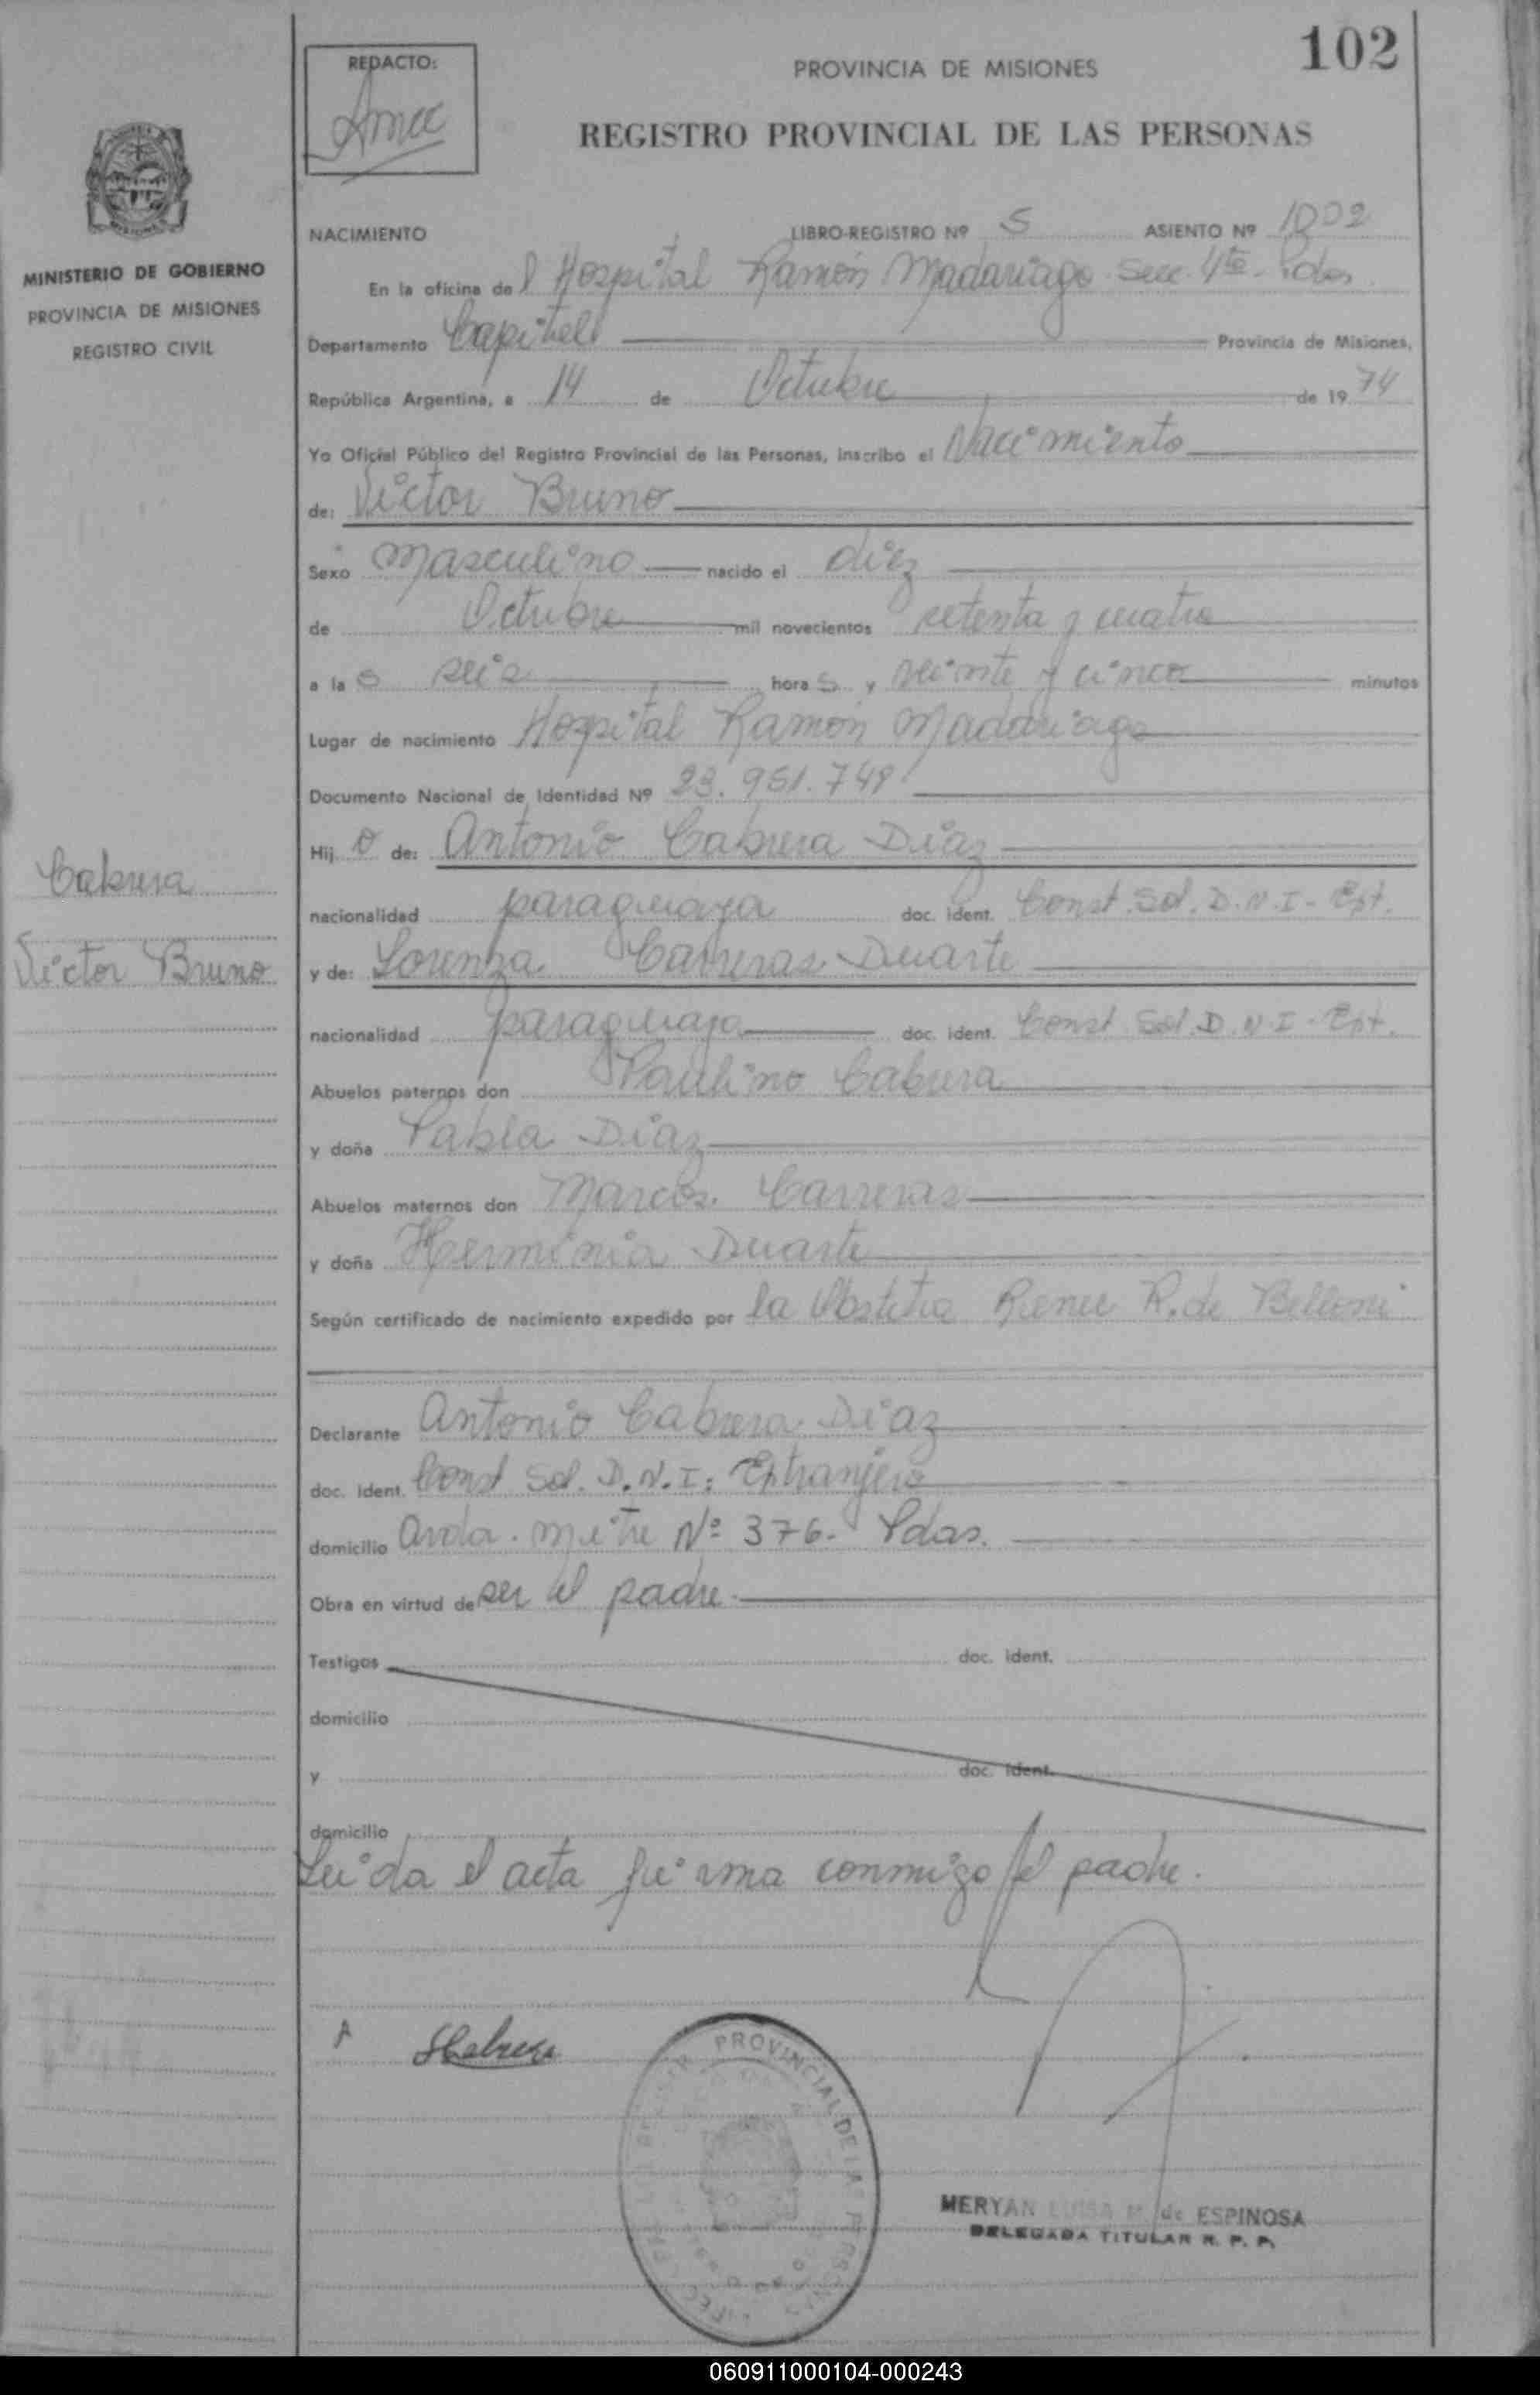 102
REDACTO:
PROVINCIA DE MISIONES
REGISTRO PROVINCIAL DE LAS PERSONAS
MINISTERIO DE GOBIERNO
PROVINCIA DE MISIONES
REGISTRO CIVIL
NACIMIENTO LIBRO-REGISTRO Nº 5 ASIENTO Nº 1002
En la oficina de l Hospital Ramón Madariaga Secc. 4ta - Pdas
Departamento Capital Provincia de Misiones,
República Argentina, a 14 de Octubre de 1974
Yo Oficial Público del Registro Provincial de las Personas, inscribo el Nacimiento
de: Victor Bruno
Sexo Masculino nacido el diez
de Octubre mil novecientos setenta y cuatro
a las seis horas y veinte y cinco minutos
Lugar de nacimiento Hospital Ramón Madariaga
Documento Nacional de Identidad Nº 23.951.749
Hijo de: Antonio Cabrera Diaz
Cabrera
nacionalidad paraguaya doc. ident. Const. Sol. D.N.I - Ext.
Victor Bruno
y de: Lorenza Carreras Duarte
nacionalidad paraguaya doc. ident. Const. Sol. D.N.I - Ext.
Abuelos paternos don Paulino Cabrera
y doña Pabla Diaz
Abuelos maternos don Marcos Carreras
y doña Herminia Duarte
Según certificado de nacimiento expedido por la Obstetra Renee R. de Belloni
Declarante Antonio Cabrera Diaz
doc. ident. Const Sol. D.N.I: Extranjero
domicilio Avda. Mitre Nº 376- Pdas.
Obra en virtud de ser el padre.
Testigos doc. ident.
domicilio
y doc. ident.
domicilio
Leida el acta firma conmigo el padre.
A Cabrera
PROVINCIAL DE LAS PERSONAS
MERYAN LUISA M. de ESPINOSA
DELEGADA TITULAR R. P. P.
060911000104-000243